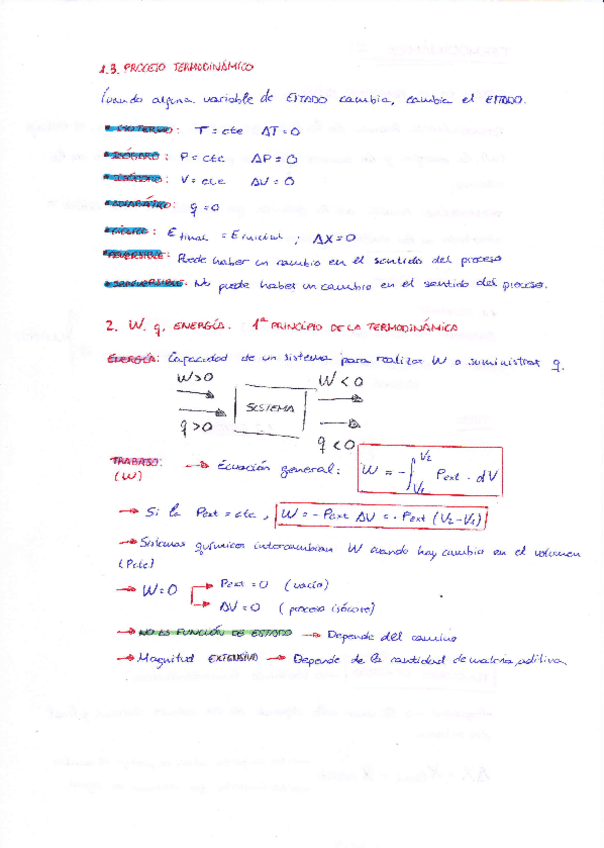 1.3. PROCESO TERMODINÁMICO
Cuando alguna variable de ESTADO cambia, cambia el ESTADO.
• ISOTERMO: T = cte ΔT = 0
• ISÓBARO: P = cte ΔP = 0
• ISÓCORO: V = cte ΔV = 0
• ADIABÁTICO: q = 0
• CÍCLICO: E final = E inicial ; ΔX = 0
• REVERSIBLE: Puede haber un cambio en el sentido del proceso
• IRREVERSIBLE: No puede haber un cambio en el sentido del proceso.
2. W, q, ENERGÍA. 1er PRINCIPIO DE LA TERMODINÁMICA
ENERGÍA: Capacidad de un sistema para realizar W o suministrar q.
W>0 W<0
SISTEMA
q>0 q<0
TRABAJO: → Ecuación general: W = - ∫V1V2 Pext · dV
(W)
→ Si la Pext = cte, W = - Pext ΔV = - Pext (V2-V1)
→ Sistemas químicos intercambian W cuando hay cambio en el volumen
(P cte)
→ W=0 → Pext = 0 (vacío)
→ ΔV = 0 (proceso isócoro)
→ NO ES FUNCIÓN DE ESTADO → Depende del camino
→ Magnitud EXTENSIVA → Depende de la cantidad de materia, aditiva